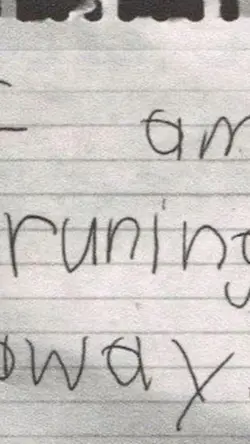 I am
runing
away